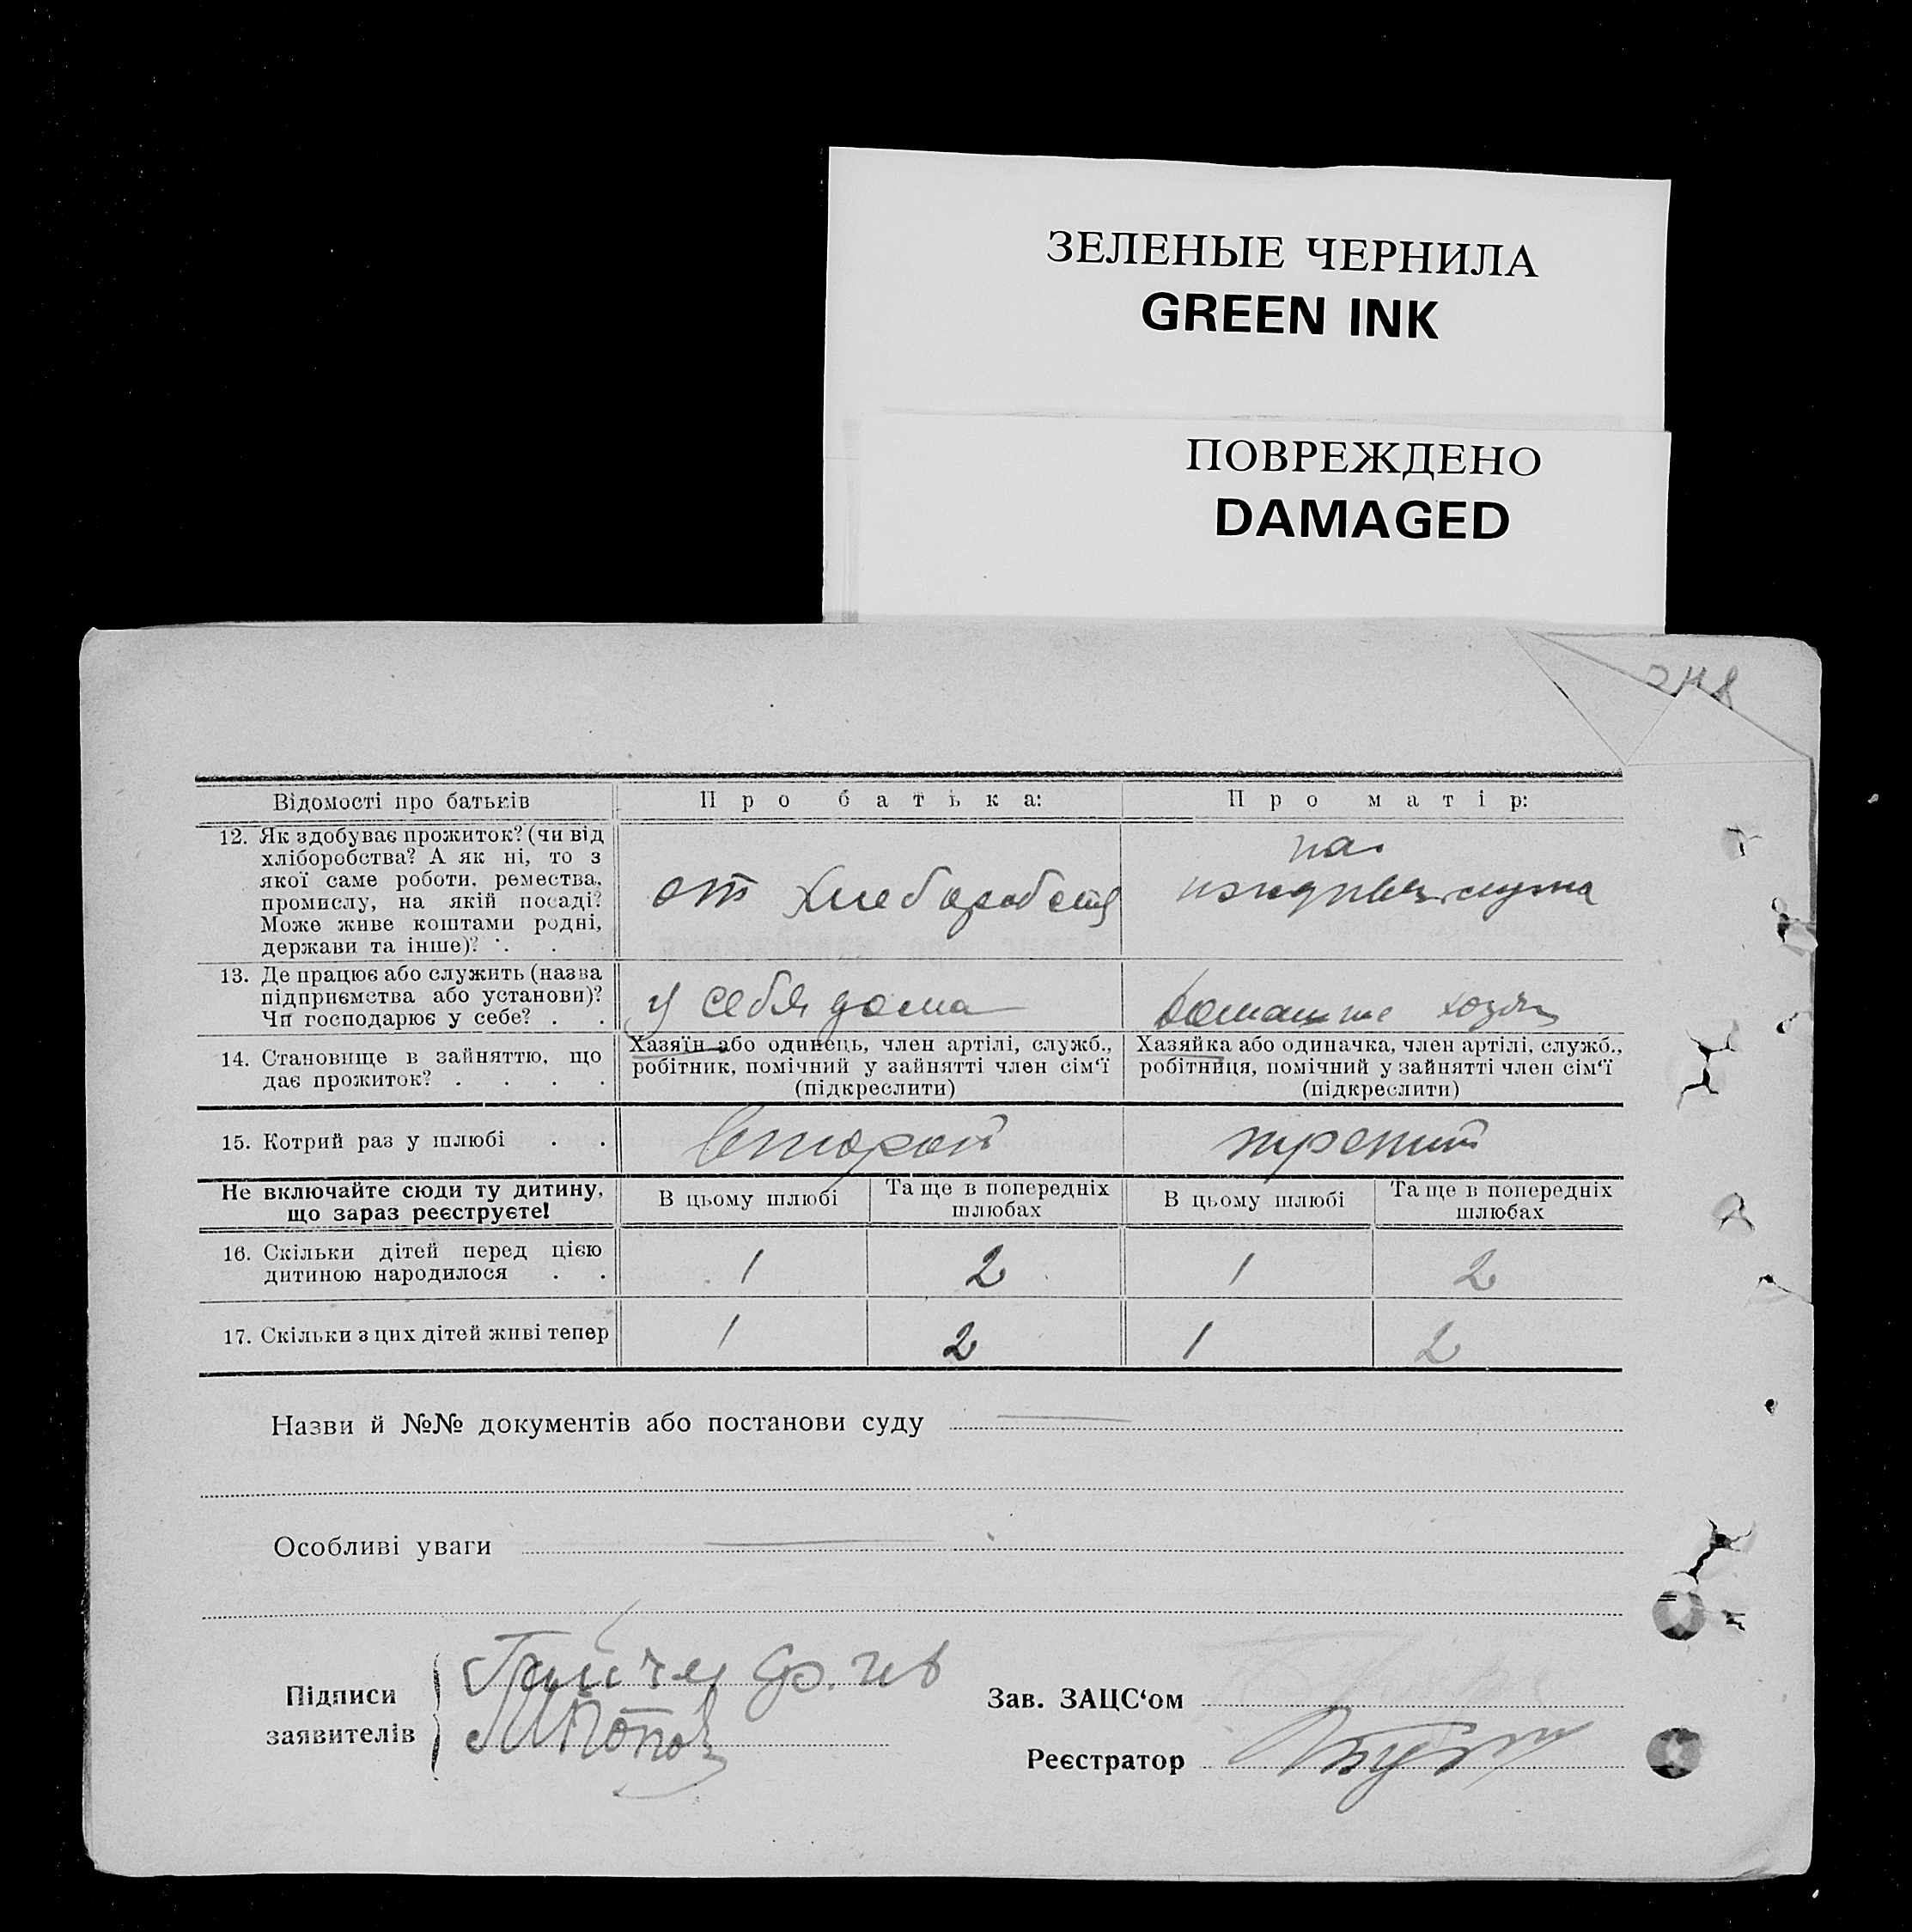 ЗЕЛЕНЫЕ ЧЕРНИЛА
GREEN INK
ПОВРЕЖДЕНО
DAMAGED
Відомості про батьків
Про батька:
Про матір:
12. Як здобуває прожиток? (чи від
хліборобства? А як ні, то з
якої саме роботи, ремества,
промислу, на якій посаді?
Може живе коштами родні,
держави та інше)? . .
от
на
13. Де працює або служить (назва
підприємства або установи)?
Чи господарює у себе? . .
у себя дома
14. Становище в зайняттю, що
дає прожиток? . . . .
Хазяїн або одинець, член артілі, служб.,
робітник, помічний у зайнятті член сім'ї
(підкреслити)
Хазяйка або одиначка, член артілі, служб.,
робітниця, помічний у зайнятті член сім'ї
(підкреслити)
15. Котрий раз у шлюбі . .
второй
третий
Не включайте сюди ту дитину,
що зараз реєструєте!
В цьому шлюбі
Та ще в попередніх
шлюбах
В цьому шлюбі
Та ще в попередніх
шлюбах
16. Скільки дітей перед цією
дитиною народилося . .
1
2
1
2
17. Скільки з цих дітей живі тепер
1
2
1
2
Назви й №№ документів або постанови суду
Особливі уваги
Підписи
заявителів
Зав. ЗАЦС'ом
Реєстратор